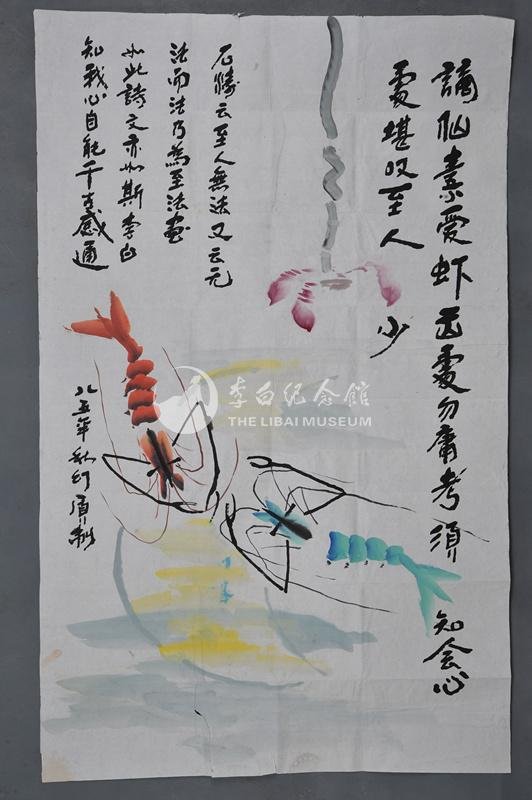 谪仙素爱虾 出处勿庸考 须知会心
处堪叹至人少
石涛云至人无法又云无
法而法乃為至法畫
如此詩文亦如斯李白
知我心自能千古感通
八五年秋
李白纪念館
THE LIBAI MUSEUM